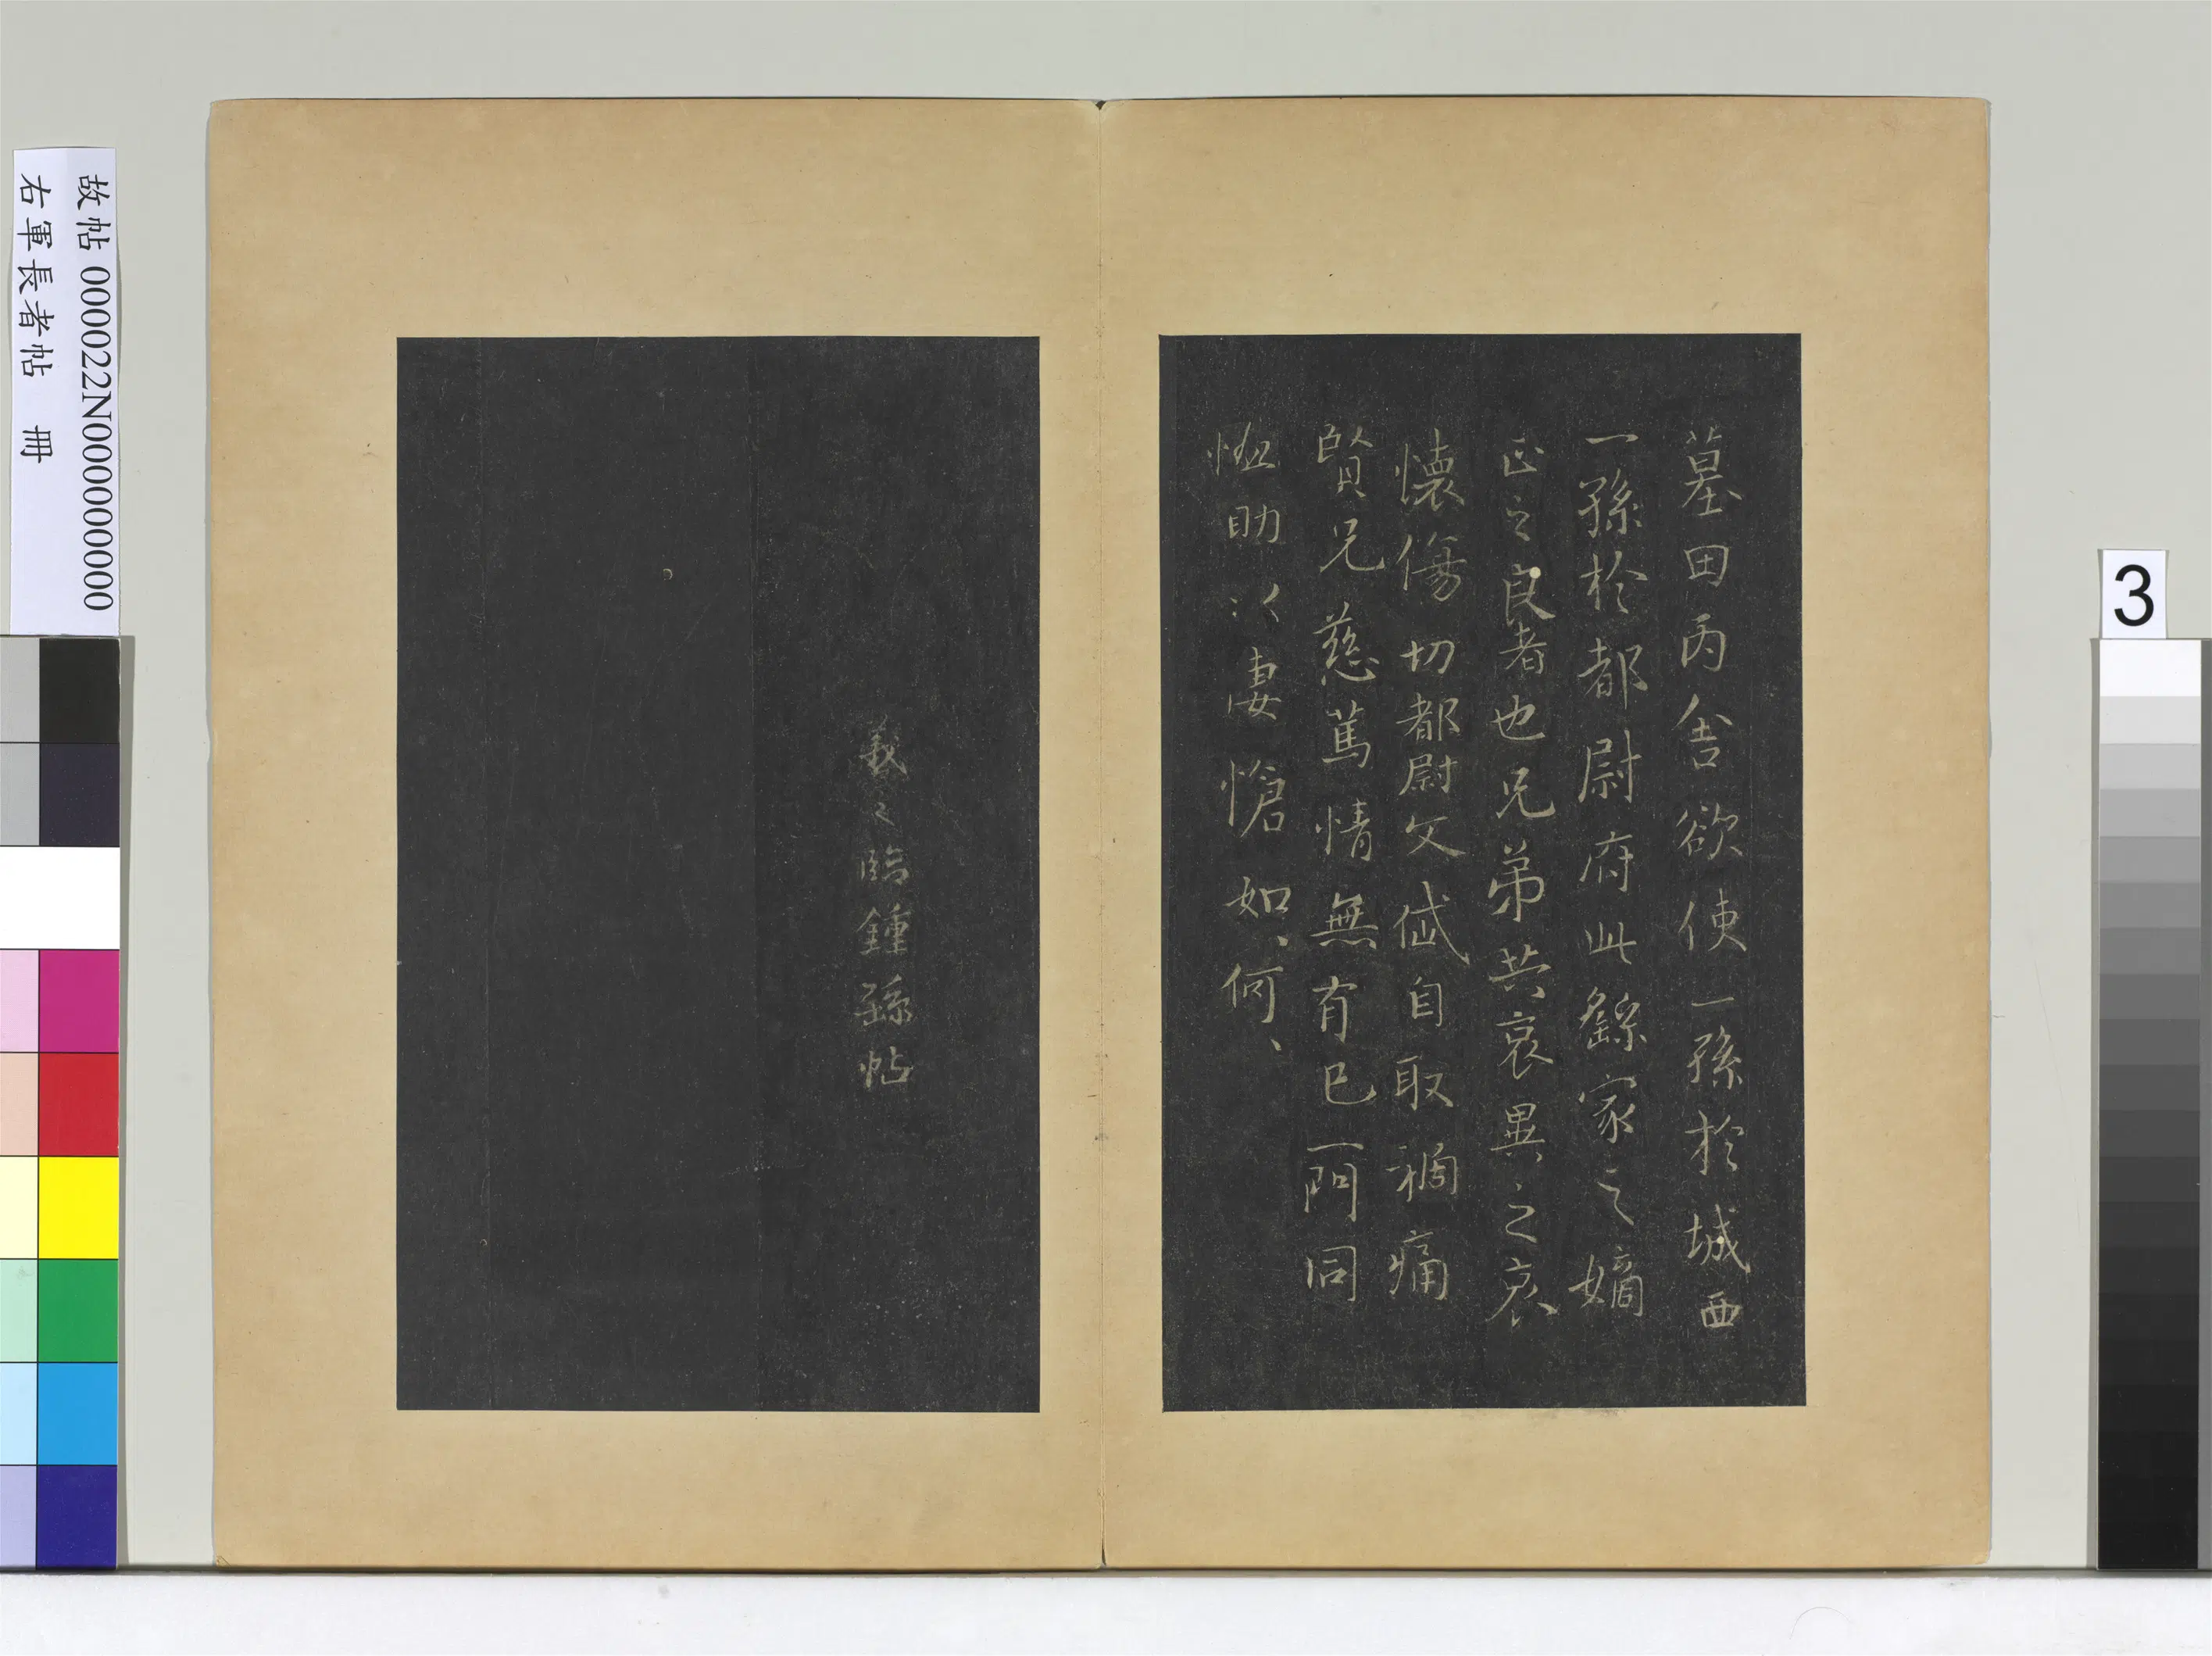 墓田丙舍欲使一孫於城西
一孫於都尉府此繇家之嫡
正之良者也兄弟共哀異之哀
懷傷切都尉文岱自取禍痛
賢兄慈篤情無有已一門同
恤助以悽愴如、何、
羲之臨鍾繇帖
故帖 000022N000000000
右軍長者帖 冊
3